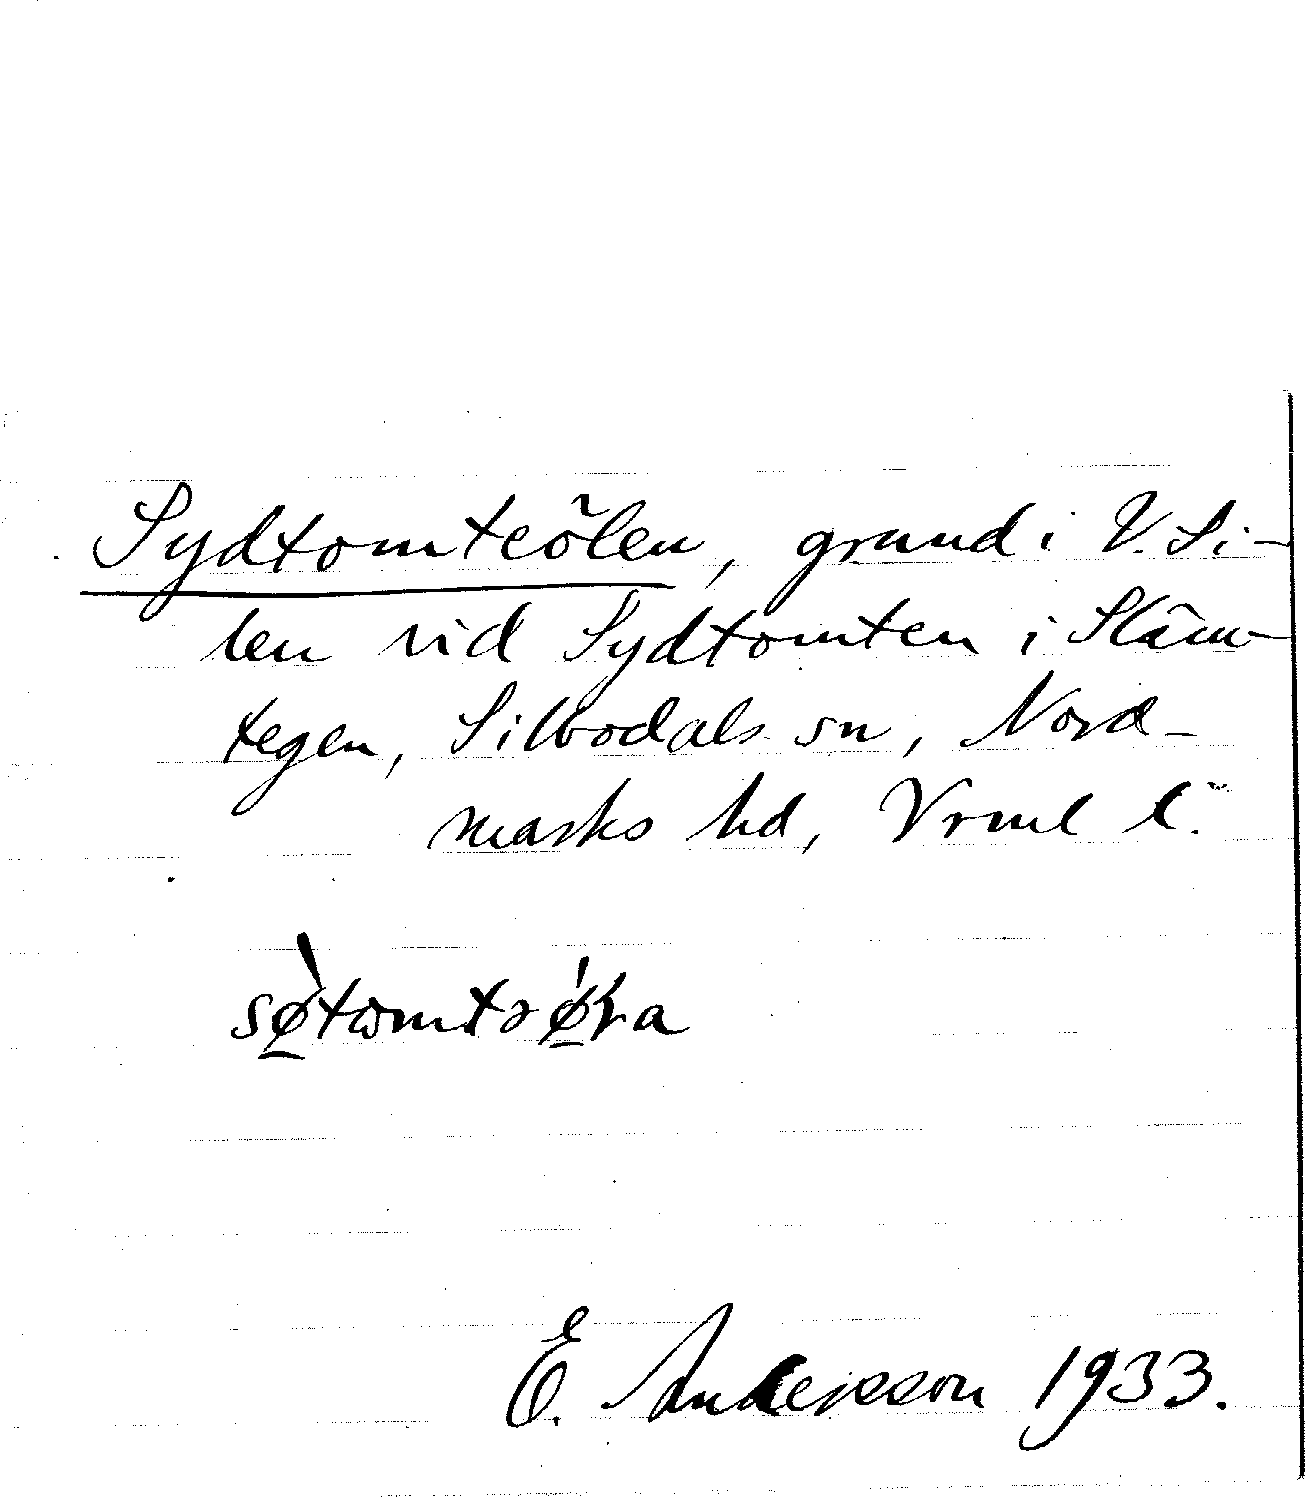 Sydtomteölen, grund i V. Si-
len vid Sydtomten i Släm-
tegen, Silbodals sn, Nord-
marks hd, Vrml l.
E. Andersson 1933.